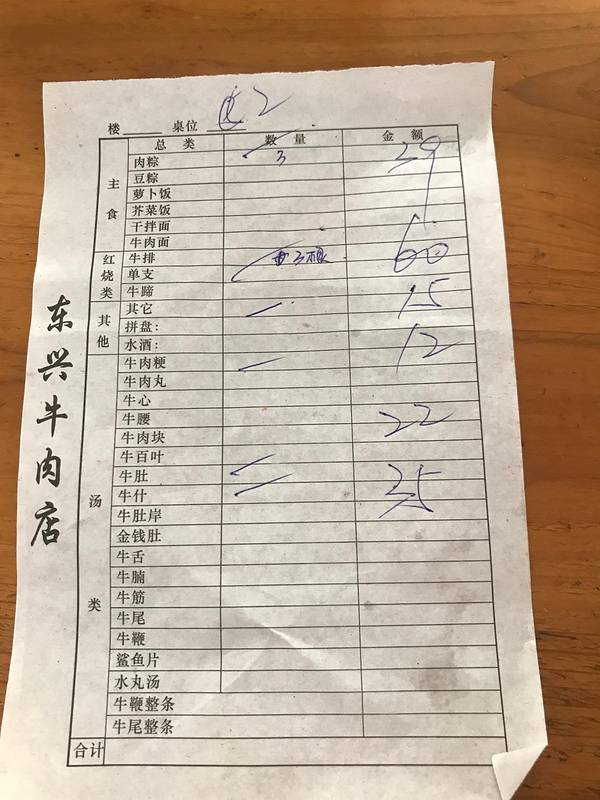 楼 桌位 2
总类 数量 金额
主食
肉粽 3 29
豆粽
萝卜饭
芥菜饭
干拌面
牛肉面
红烧类
牛排 3根 60
单支
牛蹄
其他
其它 15
拼盘:
水酒:
汤类
牛肉粳 12
牛肉丸
牛心
牛腰 22
牛肉块
牛百叶
牛肚
牛什 35
牛肚岸
金钱肚
牛舌
牛腩
牛筋
牛尾
牛鞭
鲨鱼片
水丸汤
牛鞭整条
牛尾整条
合计
东兴牛肉店